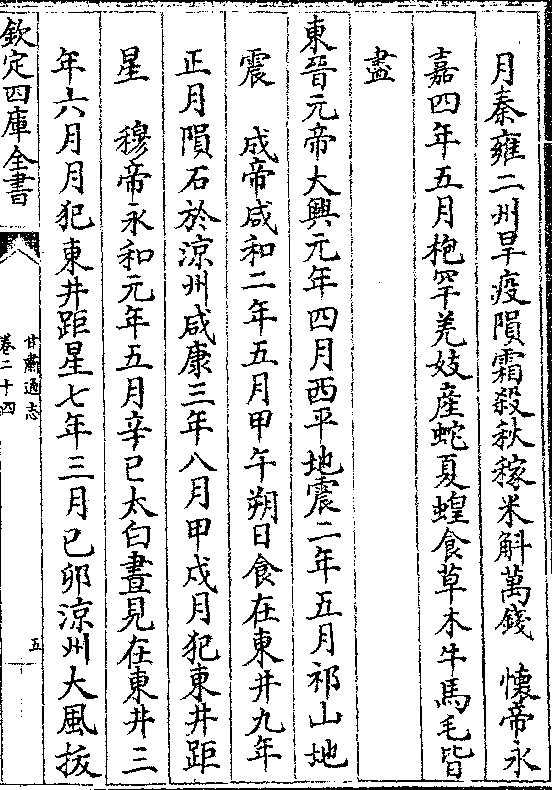 月秦雍二州旱疫隕霜殺秋稼米斛萬錢　懷帝永
嘉四年五月枹罕羌妓產蛇夏蝗食草木牛馬毛皆
盡
東晉元帝大興元年四月西平地震二年五月祁山地
震　成帝咸和二年五月甲午朔日食在東井九年
正月隕石於涼州咸康三年八月甲戍月犯東井距
星　穆帝永和元年五月辛巳太白晝見在東井三
年六月月犯東井距星七年三月己卯涼州大風拔
欽定四庫全書
甘肅通志
卷二十四
五